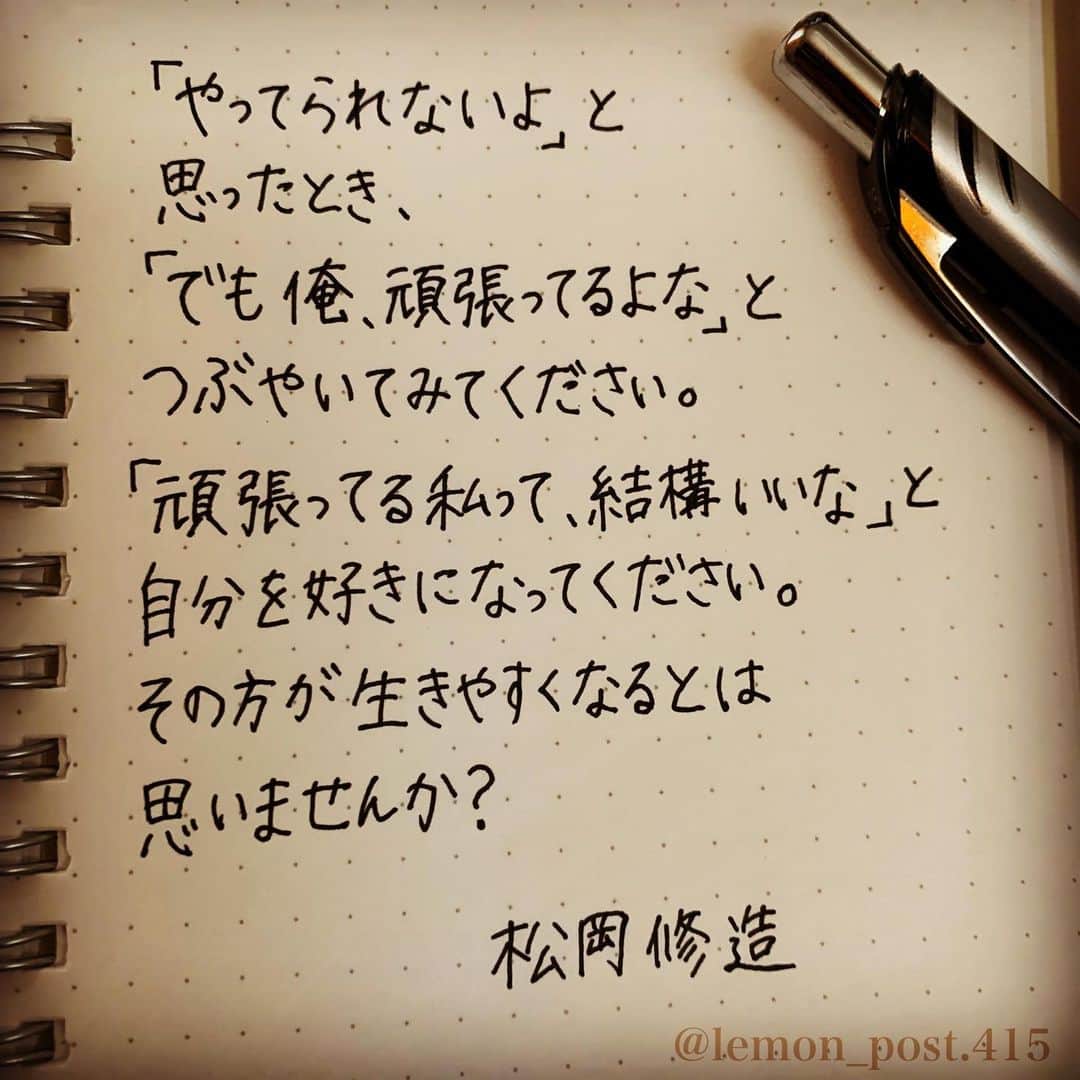 「やってられないよ」と
思ったとき、
「でも俺、頑張ってるよな」と
つぶやいてみてください。
「頑張ってる私って、結構いいな」と
自分を好きになってください。
その方が生きやすくなるとは
思いませんか？
松岡修造
@lemon_post.415